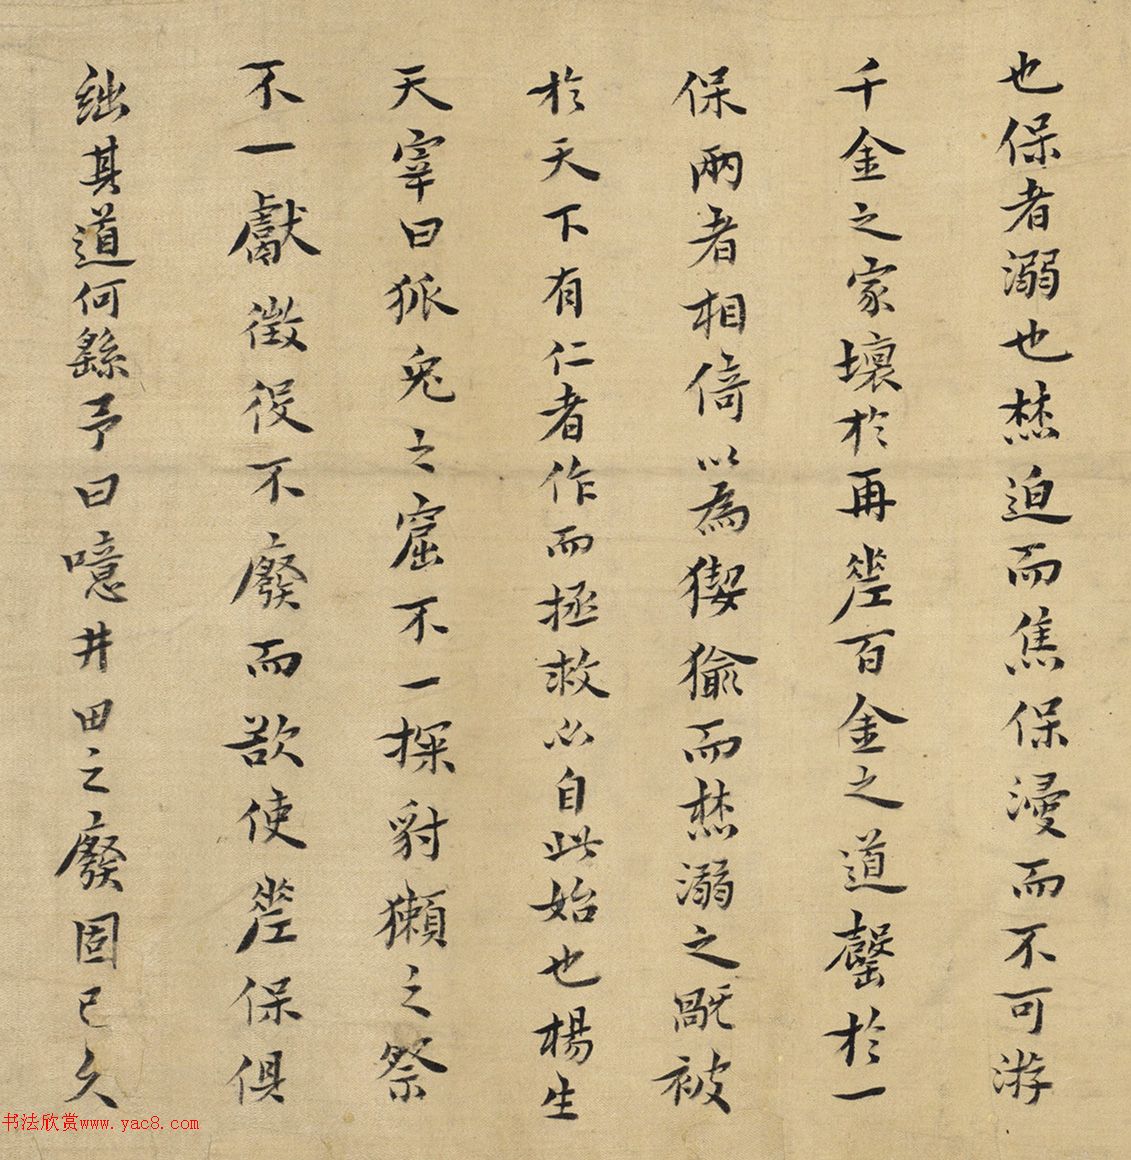 也保者溺也焚迫而焦保漫而不可游
千金之家壞於再差百金之道罄於一
保兩者相倚以為猰㺄而焚溺之旤被
於天下有仁者作而拯救必自此始也楊生
天宰曰狐兔之窟不一探豺獺之祭
不一獻徵役不廢而欲使差保俱
絀其道何繇予曰噫井田之廢固已久
书法欣赏www.yac8.com